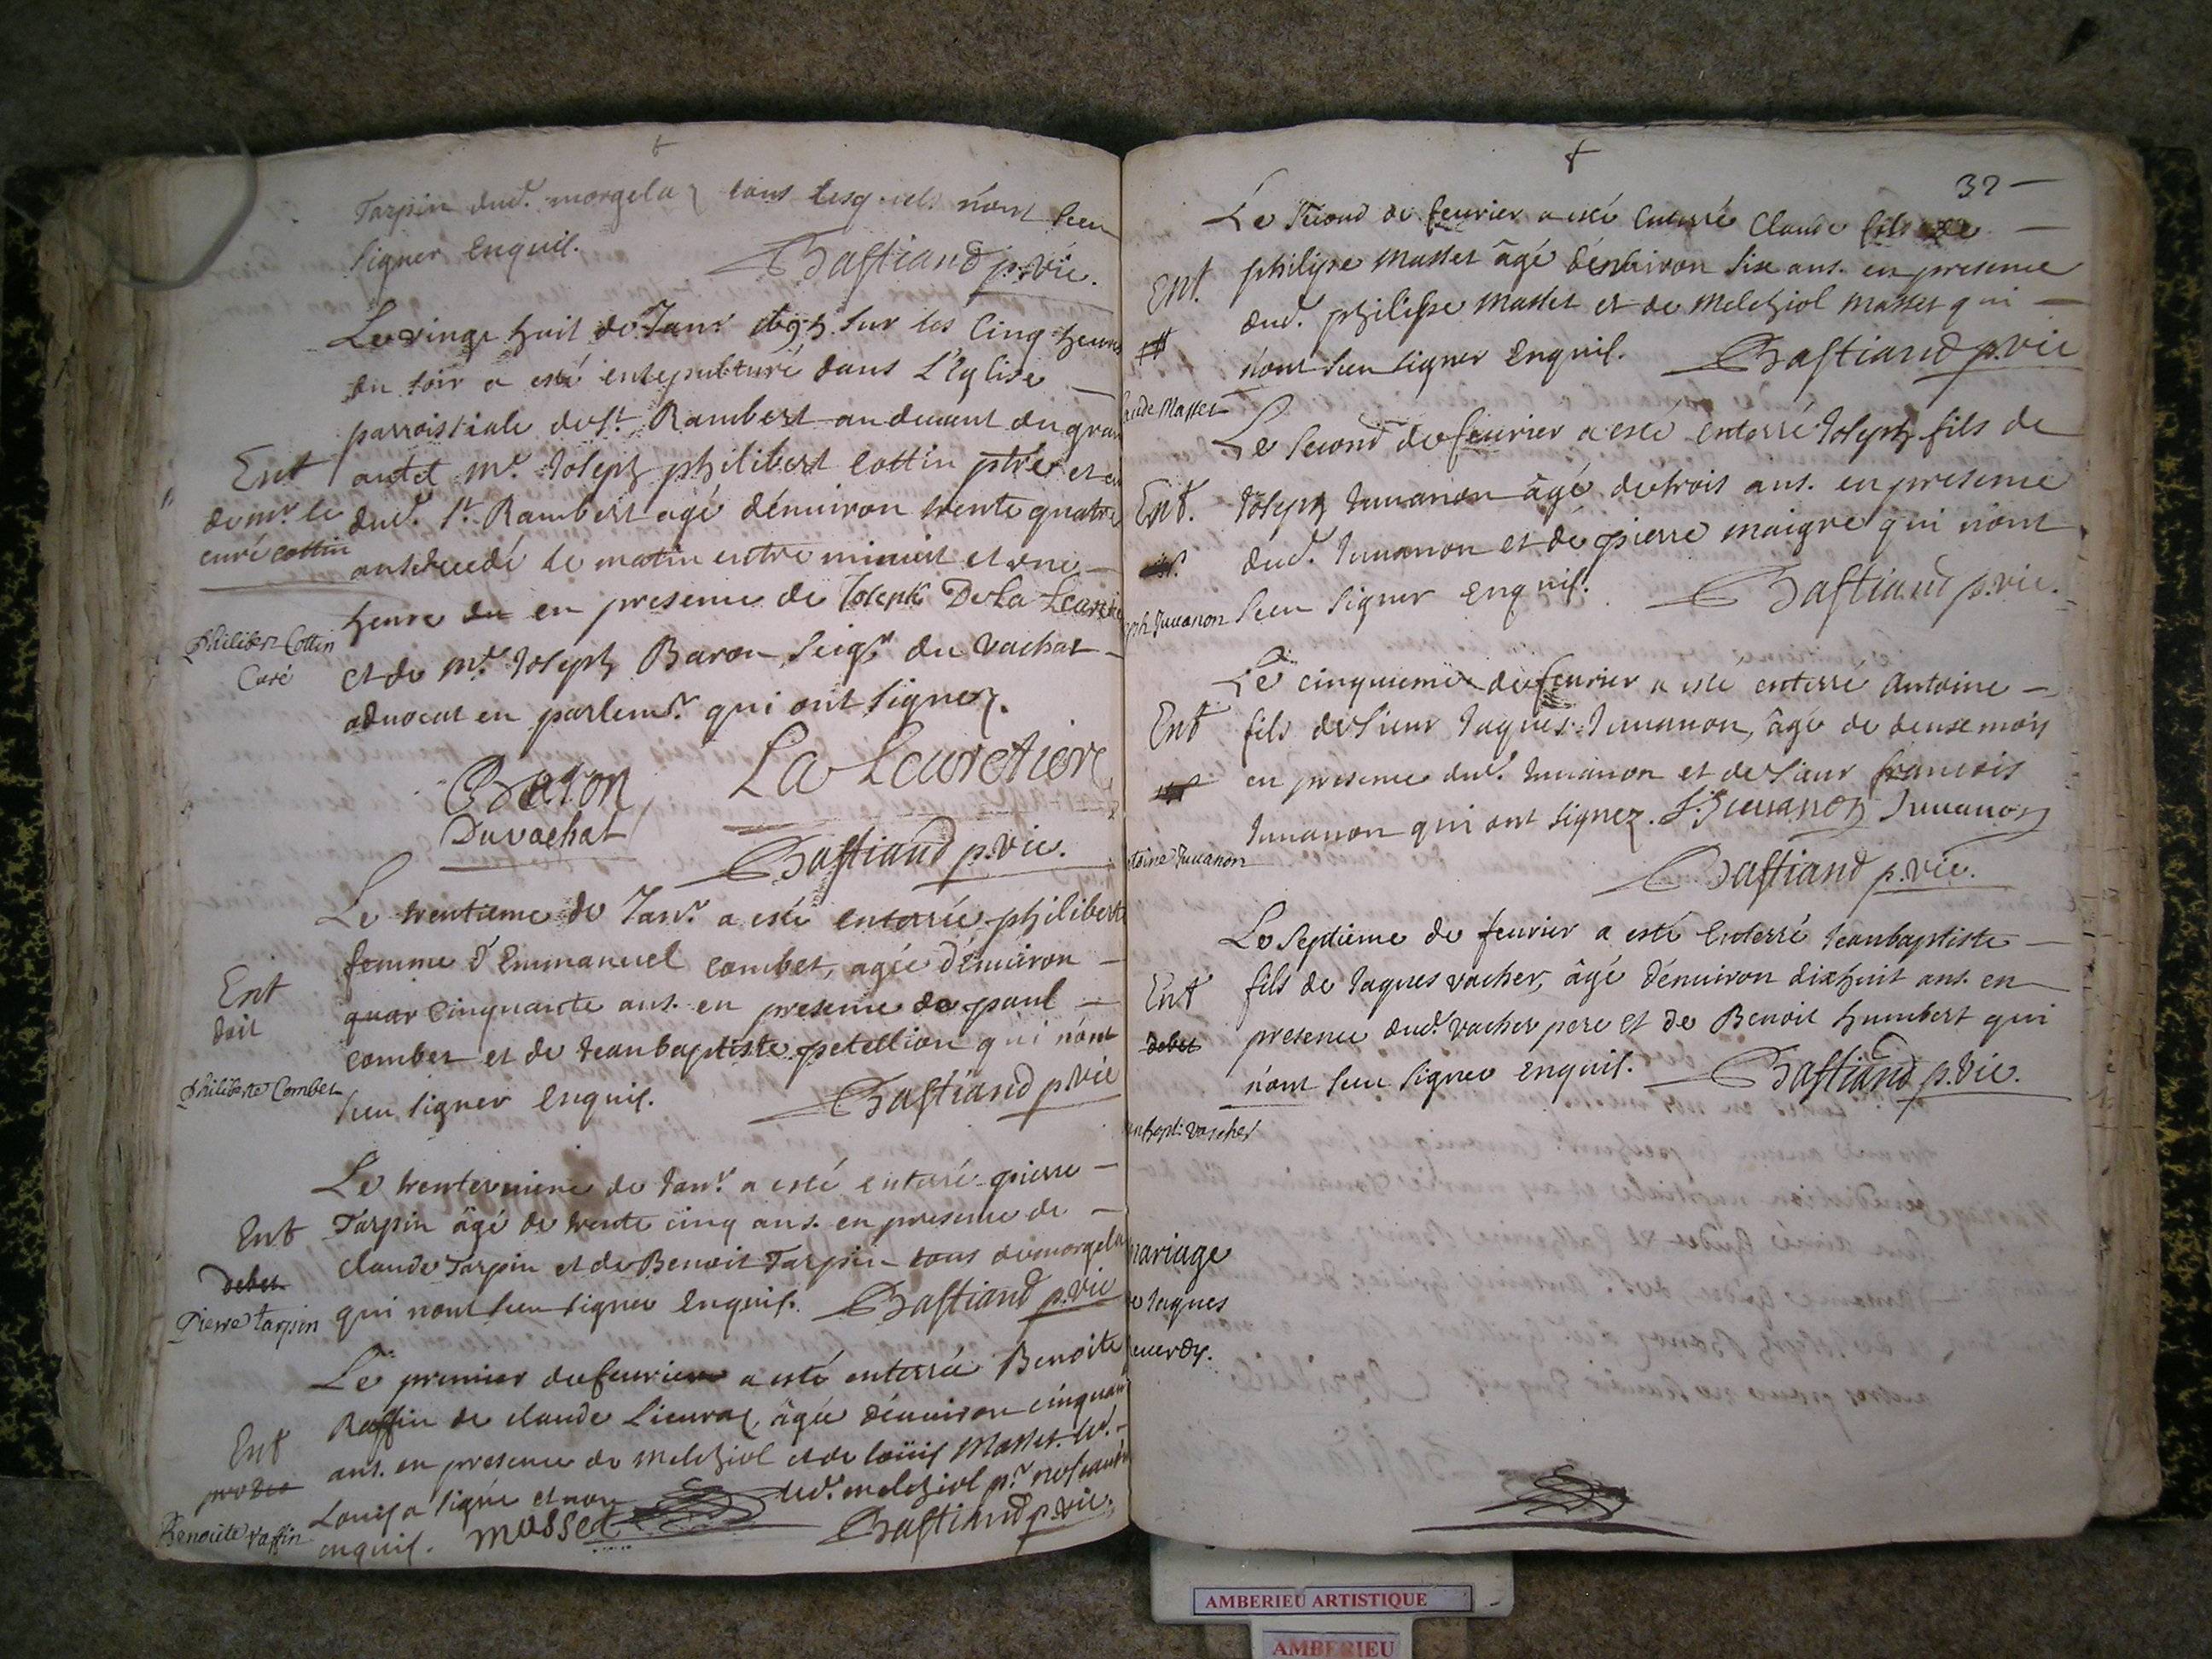 Tarpin dud. morgelaz tous lesquels n'ont sceu
signer enquis. Bastiand p. vic.
Le vingt huit de Janr 1695 sur les cinq heures
du soir a esté ensepulturé dans L'Eglise
parroissiale de St. Rambert au devant du gran
Ent autel mr. Joseph philibert Cottin ptre et
de mr. le dud. St. Rambert agé dénuiron trente quatre
curé cottin ans decedé le matin entre minuit et vne
heure du en presence de Joseph De la
Philibert Cottin
Curé
et de mr. Joseph Baron seigr du vachat
advocat en parlemr. qui ont signez.
Baron La Leuretiere
Duvachat
Bastiand p. vic.
Le trentieme de Janr. a esté enterrée philiberte
femme d'Emmanuel combet, agée dénuiron
Ent
doit
quar cinquante ans. en presence de paul
combet et de Jeanbaptiste petellion qui n'ont
Philiberte Combet
sceu signer enquis. Bastiand p. vic
Le trentevnieme de Janr. a esté enterré pierre
Ent Tarpin âgé de trente cinq ans. en presence de
claude Tarpin et de Benoit Tarpin tous de morgela
debet
Pierre tarpin
qui n'ont sceu signer enquis. Bastiand p. vic
Le premier de feurier a esté enterrée Benoite
Raffin de claude Lieuraz, âgée dénuiron cinquan
Ent
ans. en presence de melchiol et de Loüis Masset. led.
Louis a signé et non led. melchiol pr.
Benoite raffin
enquis. masset Bastiand p. vic.
32
Le second de feurier a esté enterré Claude fils de
Ent. philipe Masset âgé dénuiron six ans. en presence
dud. philipe Masset et de Melchiol Masset qui
n'ont sceu signer enquis. Bastiand p. vic
aude Masset
Le second de feurier a esté enterré Joseph fils de
Ent. Joseph Juuanon âgé de trois ans. en presence
dud. Juuanon et de pierre maigre qui n'ont
eph Juuanon sceu signer enquis. Bastiand p. vic.
Le cinquieme de feurier a esté enterré Antoine
Ent fils de sieur Jaques Juuanon, âgé de deux mois
en presence dud. Juuanon et de sieur francois
Juuanon qui ont signez. J. Juuanon Juuanon
toine Juuanon
Bastiand p. vic.
Le septieme de feurier a esté enterré Jeanbaptiste
Ent fils de Jaques vacher, âgé dénuiron dixhuit ans. en
debet presence dud. vacher pere et de Benoit humbert qui
n'ont sceu signer enquis. Bastiand p. vic.
anbapt: Vascher
mariage
de Jaques
AMBERIEU ARTISTIQUE
AMBERIEU